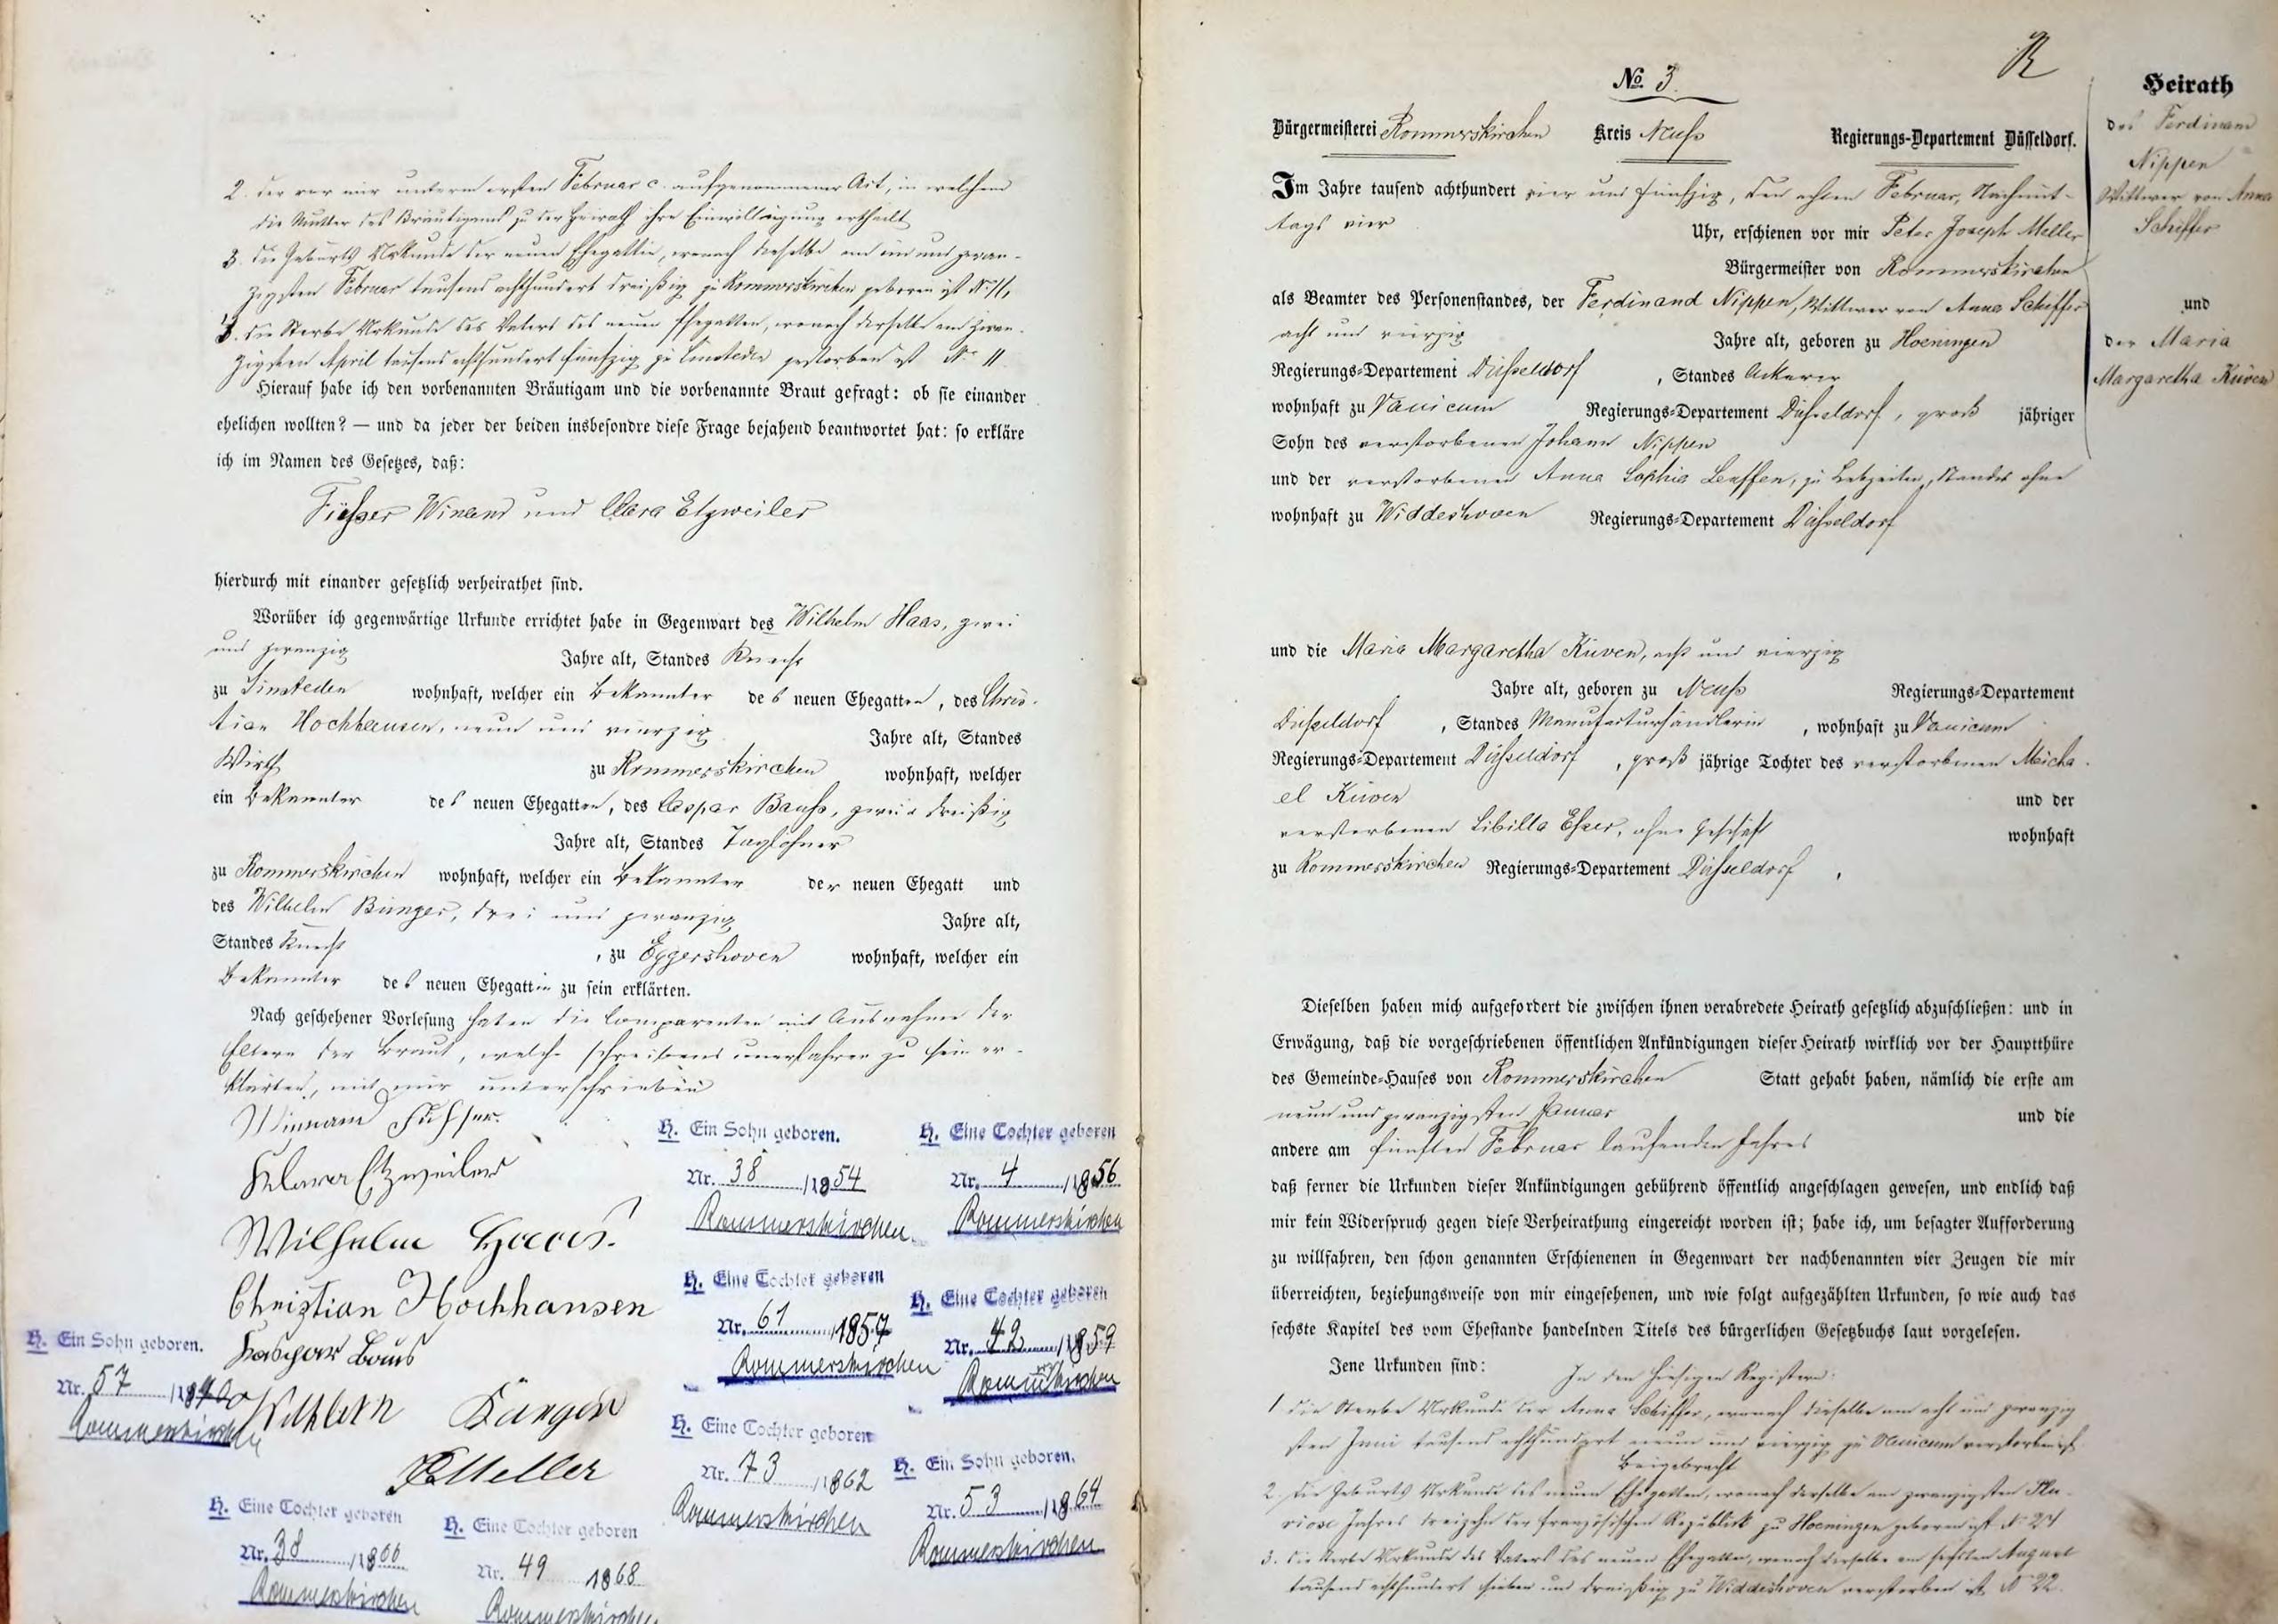 2. der vor mir unterm ersten Februar c. aufgenommener Act, in welchem
die Mutter des Bräutigams zu der Heirath ihre Einwilligung ertheilt
3. die Geburts Urkunde der neuen Ehegattin, wonach dieselbe am ein und zwan-
zigsten Februar tausend achthundert dreißig zu Rommerskirchen geboren ist No 11,
4. die Sterbe Urkunde des Vaters des neuen Ehegatten, wonach derselbe am zwan-
zigsten April tausend achthundert fünfzig zu Sinsteden gestorben ist No 11
Hierauf habe ich den vorbenannten Bräutigam und die vorbenannte Braut gefragt: ob sie einander
ehelichen wollten? — und da jeder der beiden insbesondre diese Frage bejahend beantwortet hat: so erkläre
ich im Namen des Gesetzes, daß:
Füßer Winand und Clara Etzweiler
hierdurch mit einander gesetzlich verheirathet sind.
Worüber ich gegenwärtige Urkunde errichtet habe in Gegenwart des Wilhelm Haas, zwei
und zwanzig Jahre alt, Standes Knecht
zu Sinsteden wohnhaft, welcher ein Bekannter des neuen Ehegatten, des Chris-
tian Hochhausen, neun und vierzig Jahre alt, Standes
Wirth zu Rommerskirchen wohnhaft, welcher
ein Bekannter des neuen Ehegatten, des Caspar Bauß, zwei u dreißig
Jahre alt, Standes Taglöhner
zu Rommerskirchen wohnhaft, welcher ein Bekannter der neuen Ehegatt und
des Wilhelm Bünger, drei und zwanzig Jahre alt,
Standes Knecht, zu Eggershoven wohnhaft, welcher ein
Bekannter des neuen Ehegattin zu sein erklärten.
Nach geschehener Vorlesung haben die Comparenten mit Ausnahme der
Eltern der Braut, welche schreibens unerfahren zu sein er-
klärten, mit mir unterschrieben
Winand Füsser.
Klara Etzweiler
Wilhelm Haas.
Christian Hochhausen
Kaspar Baus
Wilhelm Büngen
PJMeller
H. Ein Sohn geboren.
Nr. 38 /1854
Rommerskirchen.
H. Eine Tochter geboren
Nr. 4 /1856
Rommerskirchen
H. Eine Tochter geboren
Nr. 61 /1857
Rommerskirchen
H. Eine Tochter geboren
Nr. 42 /1859
Rommerskirchen
H. Ein Sohn geboren.
Nr. 57
Rommerskirchen
H. Eine Tochter geboren
Nr. 73 /1862
Rommerskirchen
H. Ein Sohn geboren.
Nr. 53 /1864
Rommerskirchen
H. Eine Tochter geboren
Nr. 38
Rommerskirchen
H. Eine Tochter geboren
Nr. 49 1868
Rommerskirchen
No 3.
Bürgermeisterei Rommerskirchen Kreis Neuß Regierungs-Departement Düsseldorf.
Im Jahre tausend achthundert vier und fünfzig, den achten Februar, Nachmit-
tags vier Uhr, erschienen vor mir Peter Joseph Meller
Bürgermeister von Rommerskirchen
als Beamter des Personenstandes, der Ferdinand Nippen, Wittwer von Anna Schiffer
acht und vierzig Jahre alt, geboren zu Hoeningen
Regierungs-Departement Düsseldorf, Standes Ackerer
wohnhaft zu Vanicum Regierungs-Departement Düsseldorf, groß jähriger
Sohn des verstorbenen Johann Nippen
und der verstorbenen Anna Sophia Leuffen, zu Lebzeiten, Standes ohne
wohnhaft zu Widdeshoven Regierungs-Departement Düsseldorf
und die Maria Margaretha Küven, acht und vierzig
Jahre alt, geboren zu Neuß Regierungs-Departement
Düsseldorf, Standes Manufacturhändlerin, wohnhaft zu Vanicum
Regierungs-Departement Düsseldorf, groß jährige Tochter des verstorbenen Micha-
el Küven und der
verstorbenen Sibilla Eßer, ohne Geschäft wohnhaft
zu Rommerskirchen Regierungs-Departement Düsseldorf,
Dieselben haben mich aufgefordert die zwischen ihnen verabredete Heirath gesetzlich abzuschließen: und in
Erwägung, daß die vorgeschriebenen öffentlichen Ankündigungen dieser Heirath wirklich vor der Hauptthüre
des Gemeinde-Hauses von Rommerskirchen Statt gehabt haben, nämlich die erste am
neun und zwanzigsten Januar und die
andere am fünften Februar laufenden Jahres
daß ferner die Urkunden dieser Ankündigungen gebührend öffentlich angeschlagen gewesen, und endlich daß
mir kein Widerspruch gegen diese Verheirathung eingereicht worden ist; habe ich, um besagter Aufforderung
zu willfahren, den schon genannten Erschienenen in Gegenwart der nachbenannten vier Zeugen die mir
überreichten, beziehungsweise von mir eingesehenen, und wie folgt aufgezählten Urkunden, so wie auch das
sechste Kapitel des vom Ehestande handelnden Titels des bürgerlichen Gesetzbuchs laut vorgelesen.
Jene Urkunden sind: In den hiesigen Registern:
1 die Sterbe Urkunde der Anna Schiffer, wonach dieselbe am acht und zwanzig
sten Juni tausend achthundert neun und vierzig zu Vanicum verstorben ist.
Beigebracht
2. die Geburts Urkunde des neuen Ehegatten, wonach derselbe am zwanzigsten Plu-
viose Jahres dreizehn der französischen Republick zu Hoeningen geboren ist No 24
3. die Sterbe Urkunde des Vaters des neuen Ehegatten, wonach derselbe am sechsten August
tausend achthundert sieben und dreißig zu Widdeshoven verstorben ist, No 22.
Heirath
des Ferdinand
Nippen
Wittwer von Anna
Schiffer
und
der Maria
Margaretha Küven